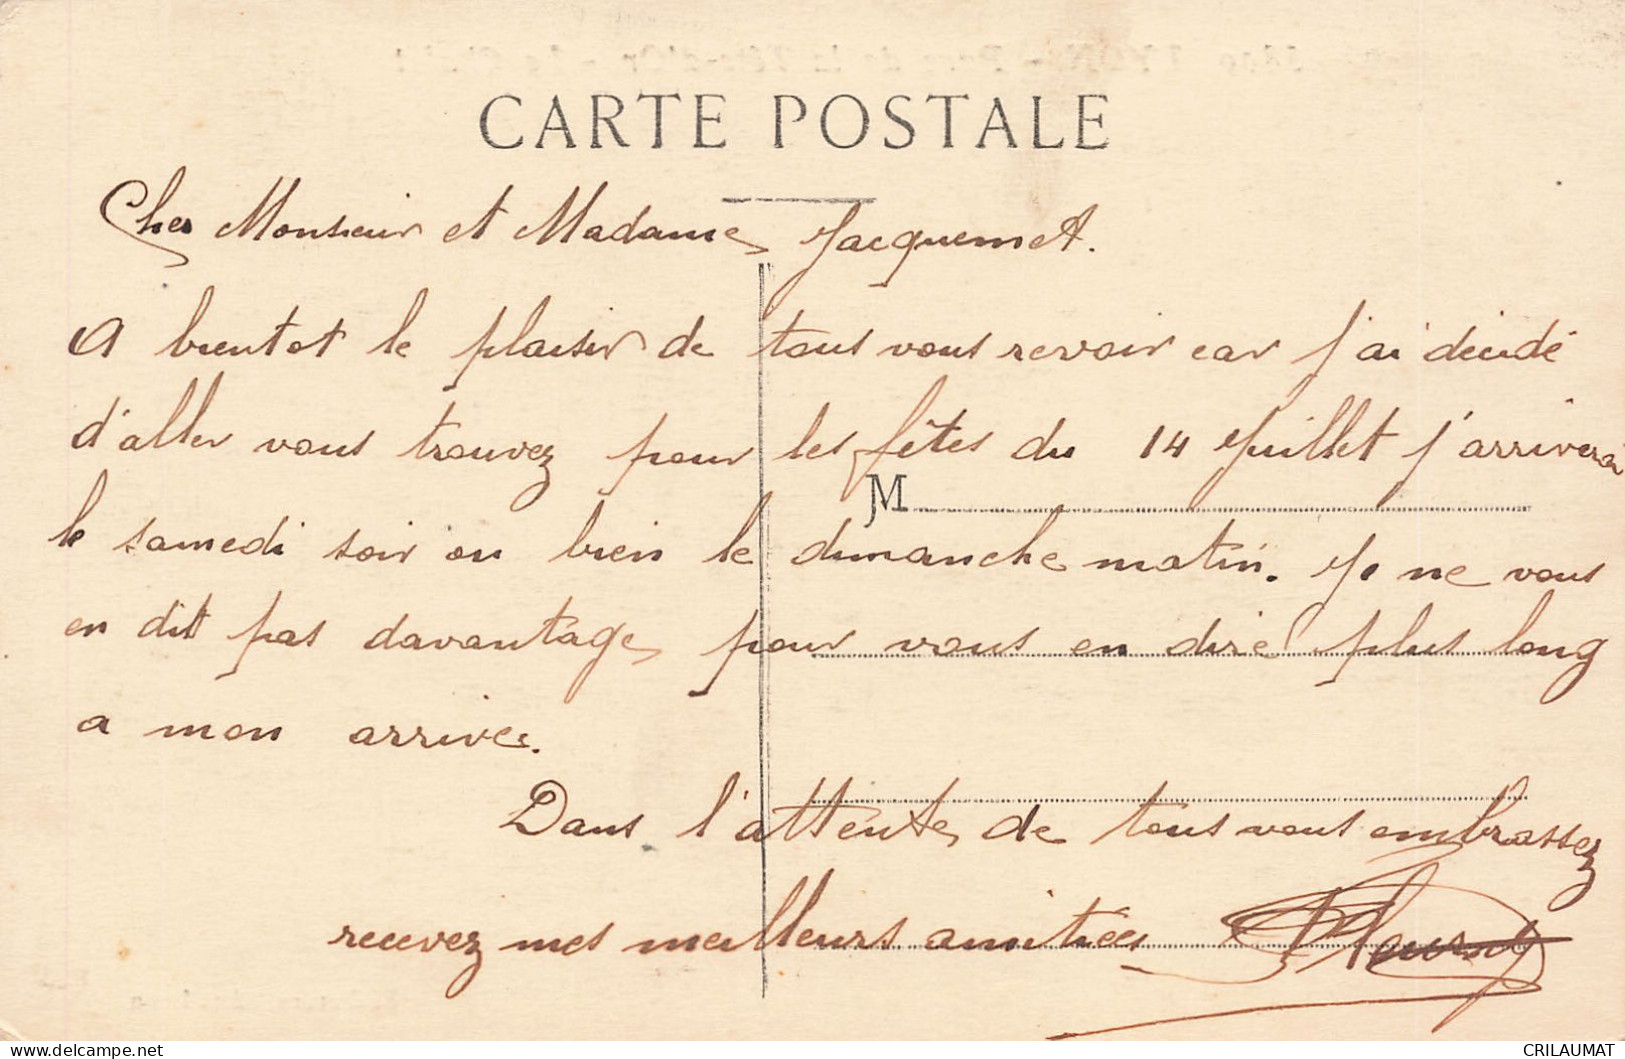 CARTE POSTALE
Cher Monsieur et Madame Jacquemet.
A bientot le plaisir de tous vous revoir car j'ai décidé
d'aller vous trouvez pour les fêtes du 14 Juillet j'arriverai
M
le samedi soir ou bien le dimanche matin. Je ne vous
en dit pas davantage, pour vous en dire plus long
a mon arrivée.
Dans l'attente, de tous vous embrassez
recevez mes meilleurs amitiées
CRILAUMAT